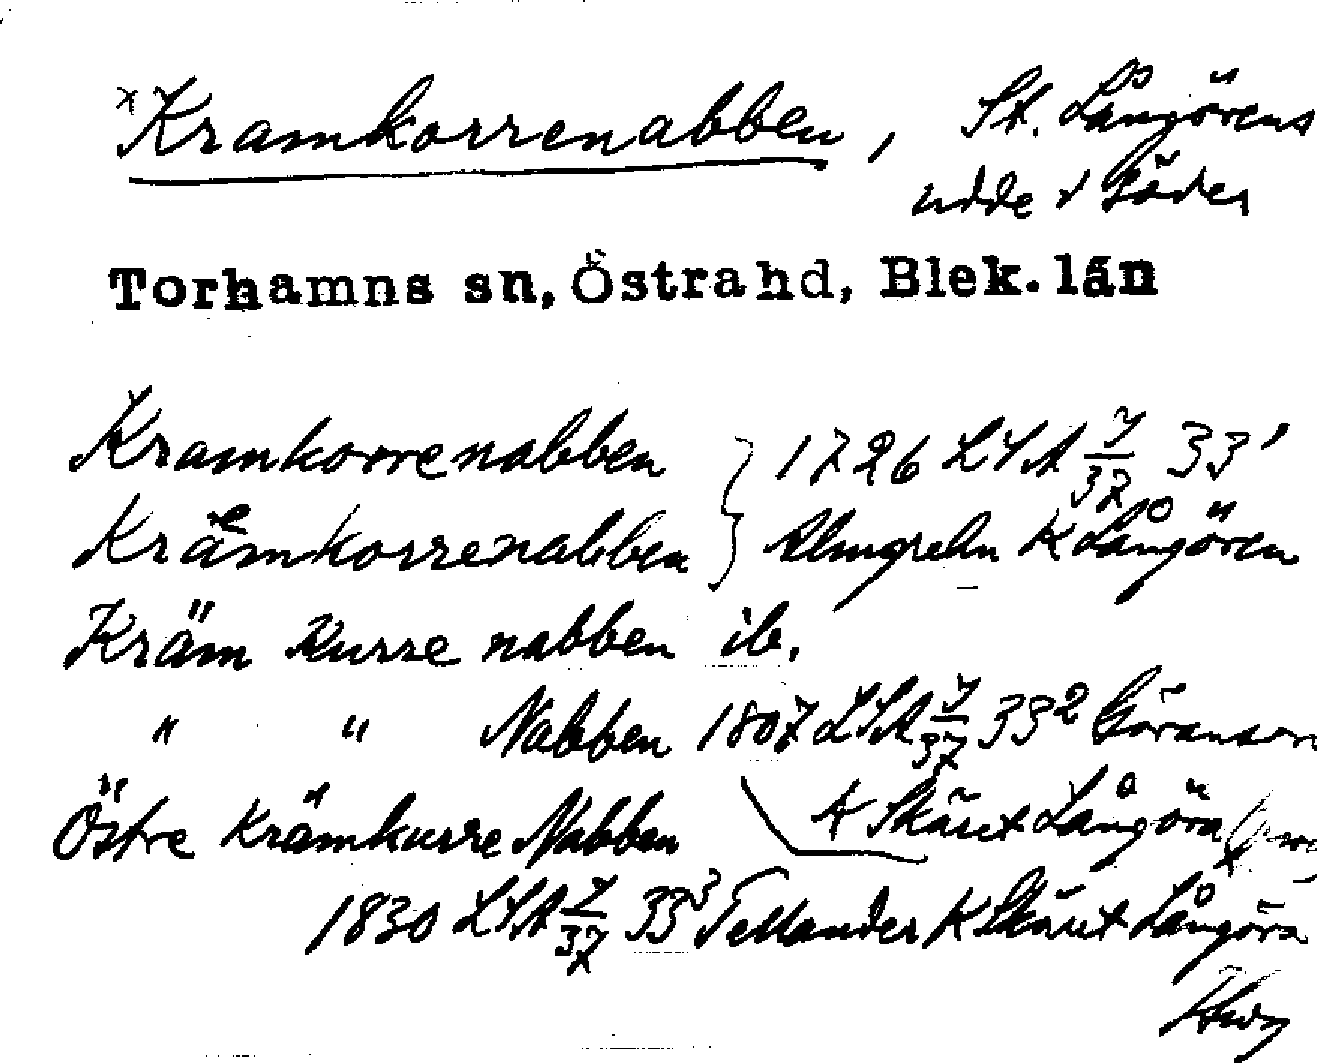 *Kramkorrenabben, St. Långörens
udde v Söder
Torhamns sn, Östra hd, Blek. län
Kramkorrenabben } 1726 LSA 7/37 33¹
Krämkorrenabben } Almgrehn K Långören
Kräm Kurre nabben ib.
" " Nabben 1807 LSA 7/37 33² Göranson
K Skäret Långöra
Östre Krämkurre Nabben
1830 LSA 7/37 33³ Tellander K Skäret Långöra